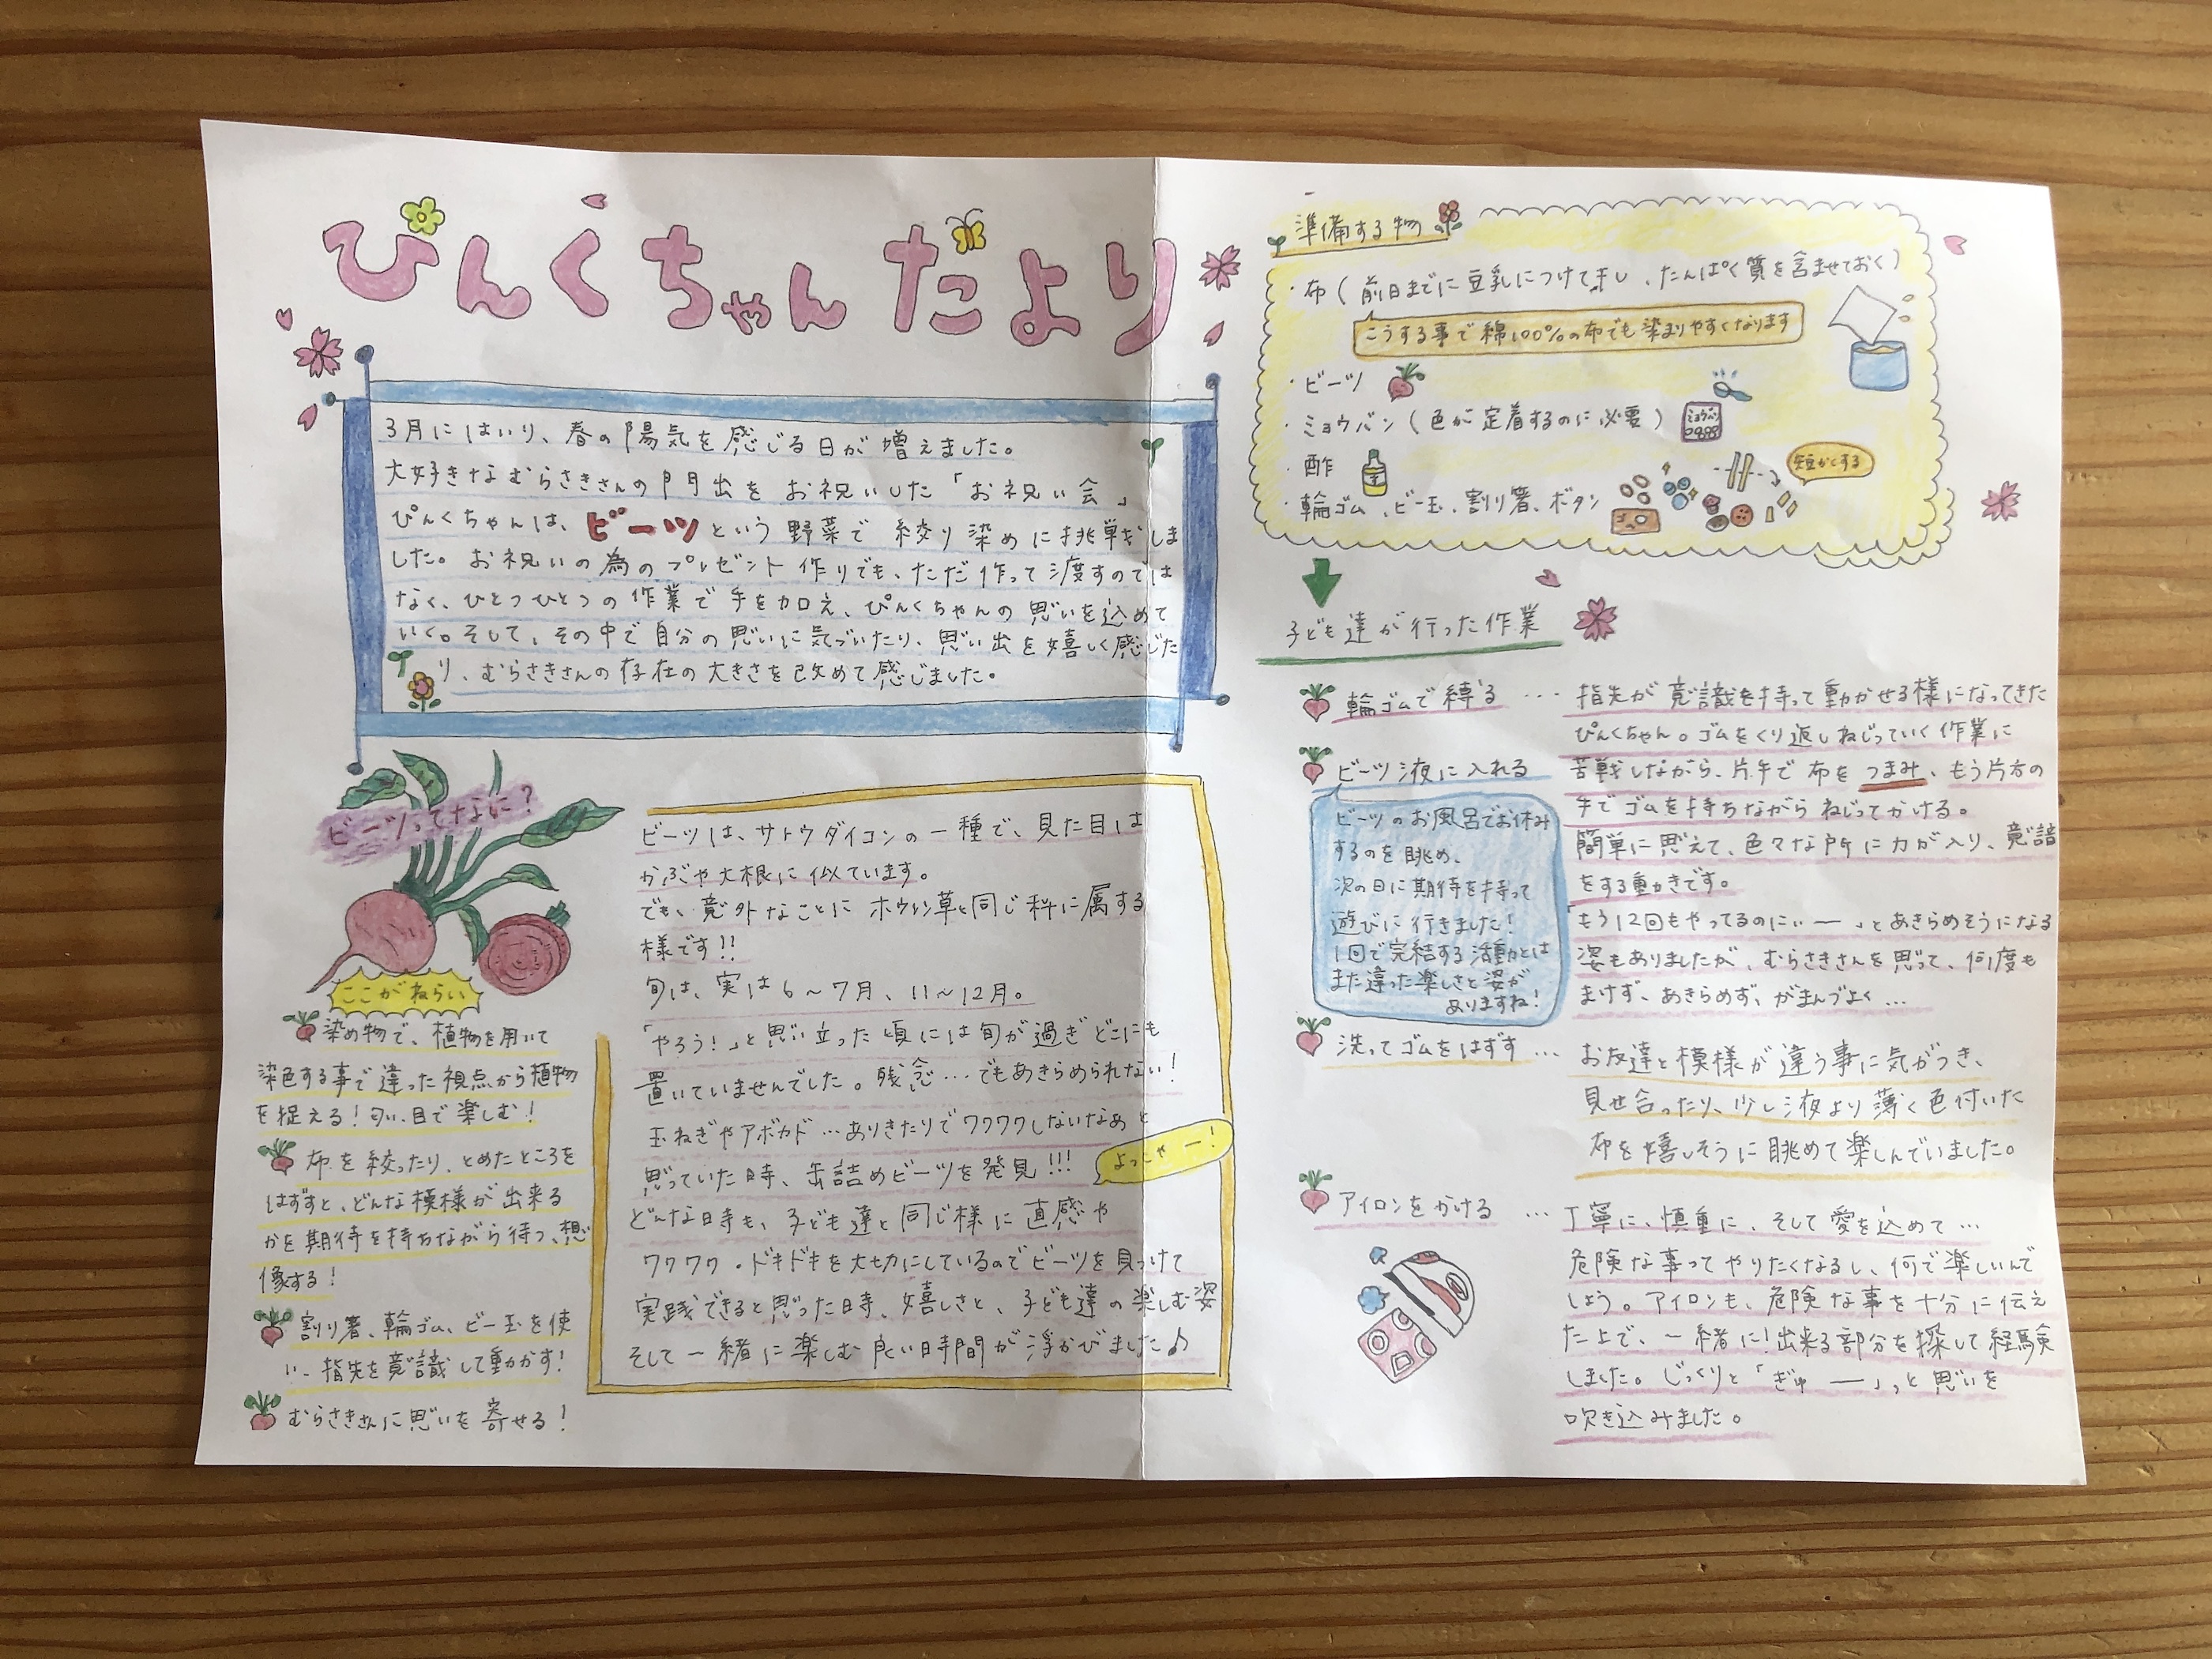 ぴんくちゃんだより
3月にはいり、春の陽気を感じる日が増えました。
大好きなむらさきさんの門出をお祝いした「お祝い会」
ぴんくちゃんは、ビーツという野菜で絞り染めに挑戦しま
した。お祝いの為のプレゼント作りでも、ただ作って渡すのでは
なく、ひとつひとつの作業で手を加え、ぴんくちゃんの思いを込めて
いく。そして、その中で自分の思いに気づいたり、思い出を嬉しく感じた
り、むらさきさんの存在の大きさを改めて感じました。
ビーツってなに?
ビーツは、サトウダイコンの一種で、見た目は
かぶや大根に似ています。
でも、意外なことにホウレン草と同じ科に属する
様です!!
旬は、実は6〜7月、11〜12月。
「やろう!」と思い立った頃には旬が過ぎどこにも
置いていませんでした。残念…でもあきらめられない!
玉ねぎやアボカド…ありきたりでワクワクしないなぁと
思っていた時、缶詰めビーツを発見!!!
よっしゃー!
どんな時も、子ども達と同じ様に直感や
ワクワク・ドキドキを大切にしているのでビーツを見つけて
実践できると思った時、嬉しさと、子ども達の楽しむ姿
そして一緒に楽しむ良い時間が浮かびました♪
ここがねらい
染め物で、植物を用いて
染色する事で違った視点から植物
を捉える!匂い、目で楽しむ!
布を絞ったり、とめたところを
はずすと、どんな模様が出来る
かを期待を持ちながら待つ、想
像する!
割り箸、輪ゴム、ビー玉を使
い、指先を意識して動かす!
むらさきさんに思いを寄せる!
準備する物
・布(前日までに豆乳につけて干し、たんぱく質を含ませておく)
こうする事で綿100%の布でも染まりやすくなります
・ビーツ
・ミョウバン(色が定着するのに必要)
ミョウバン
・酢
・輪ゴム、ビー玉、割り箸、ボタン
短かくする
子ども達が行った作業
輪ゴムで縛る…
指先が意識を持って動かせる様になってきた
ぴんくちゃん。ゴムをくり返しねじっていく作業に
苦戦しながら、片手で布をつまみ、もう片方の
手でゴムを持ちながらねじってかける。
簡単に思えて、色々な所に力が入り、意識
をする動きです。
「もう12回もやってるのにぃー」とあきらめそうになる
姿もありましたが、むらさきさんを思って、何度も
まけず、あきらめず、がまんづよく…
ビーツ液に入れる
ビーツのお風呂でお休み
するのを眺め、
次の日に期待を持って
遊びに行きました!
1回で完結する活動とは
また違った楽しさと姿が
ありますね!
洗ってゴムをはずす…
お友達と模様が違う事に気がつき、
見せ合ったり、少し液より薄く色付いた
布を嬉しそうに眺めて楽しんでいました。
アイロンをかける…
丁寧に、慎重に、そして愛を込めて…
危険な事ってやりたくなるし、何で楽しいんで
しょう。アイロンも、危険な事を十分に伝え
た上で、一緒に!出来る部分を探して経験
しました。じっくりと「ぎゅー」っと思いを
吹き込みました。